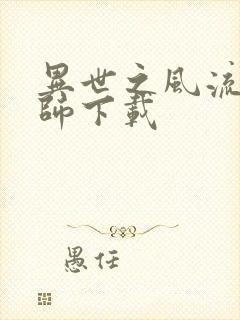 異世之風流
師下載
愚任